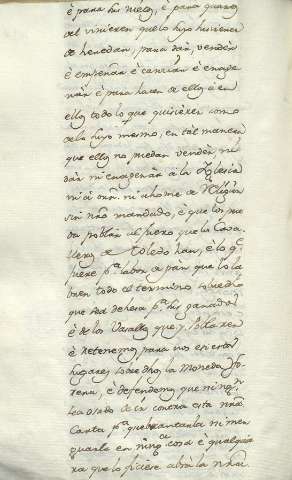 è para sus nietos, è para quantos
del vinieren que lo suyo hovieren
de heredar, para dar, vender
è empeñar è camviar è enage
nar è para hacer de ello è en
ello todo lo que quisieren como
de lo suyo mesmo, en tal manera
que ellos no puedan vender ni
dar ni enagenar à la Iglesia
ni à orn. ni à home de Religion
sin nro mandado, è que los pue
da poblar al fuero que los Cava
lleros de Toledo han, è lo q.
fuere p.ª labor de pan que lo la
bren todo el termino sobredho
que sea dehesa p.ª sus ganados
è de los Vasallos que y poblaren
è retenemos para nos en estos
lugares sobredhos, la Moneda fo
rera, è defendemos que ning.º
sea osado de ir contra esta nra
Carta p.ª quebrantarla ni men
guarla en ning.ª cosa è qualquie
ra que lo ficiese abria la nra